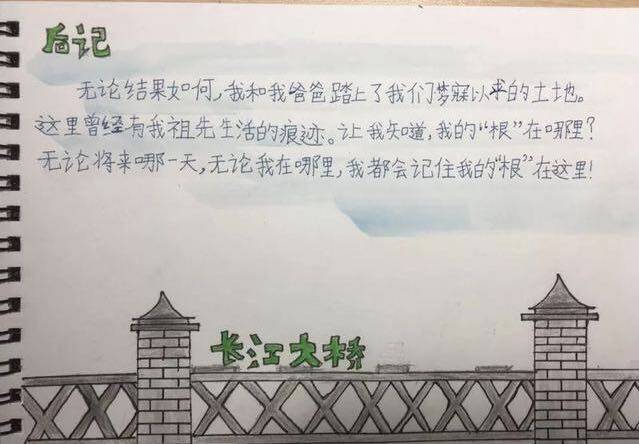 后记
无论结果如何,我和我爸爸踏上了我们梦寐以求的土地。
这里曾经有我祖先生活的痕迹。让我知道,我的“根”在哪里?
无论将来哪一天,无论我在哪里,我都会记住我的“根”在这里!
长江大桥